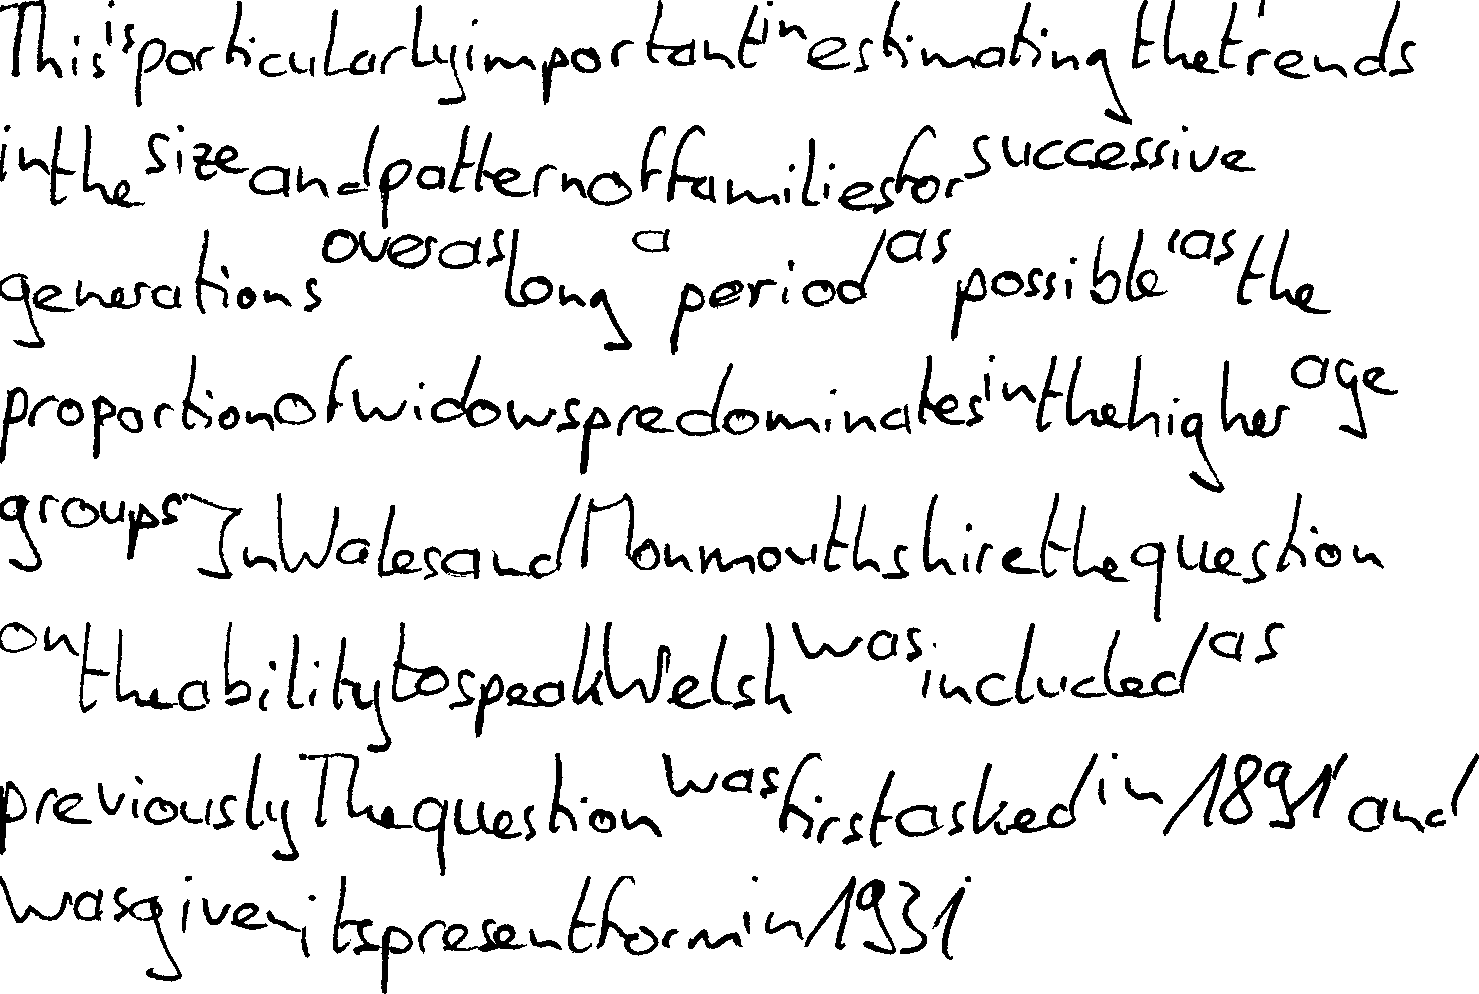 This is particularly important in estimating the trends
in the size and pattern of families for successive
generations over as long a period as possible as the
proportion of widows predominates in the higher age
groups In Wales and Monmouthshire the question
on the ability to speak Welsh was included as
previously The question was first asked in 1891 and
was given its present form in 1931